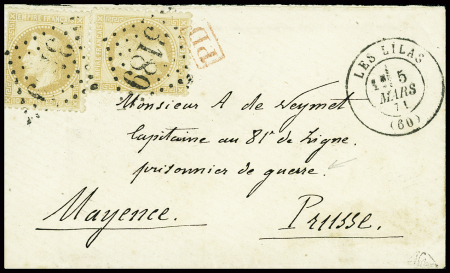 6189
PD
LES LILAS
5
MARS
71
(60)
Monsieur A de Veymet
Capitaine au 81e de Ligne
prisonnier de guerre
Mayence. Prusse.